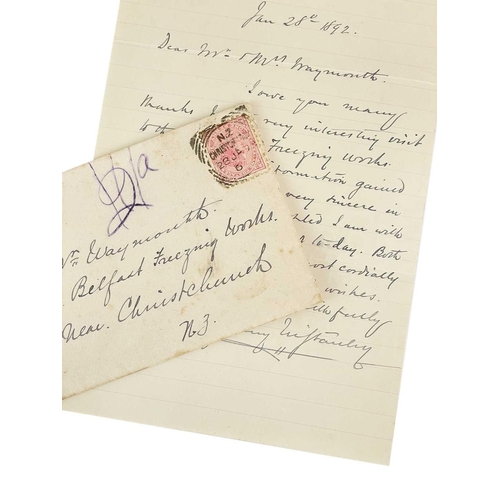 Jan 28th 1892.
Dear Mr & Mrs Waymouth.
I owe you many
thanks very interesting visit
to the Freezing Works.
formation gained
very sincere in
I am with
to-day. Both
most cordially
wishes.
faithfully
Stanley
N.Z
CHRISTCHURCH
28 JA 92
Mr Waymouth.
Belfast Freezing Works.
Near Christchurch
N.Z.